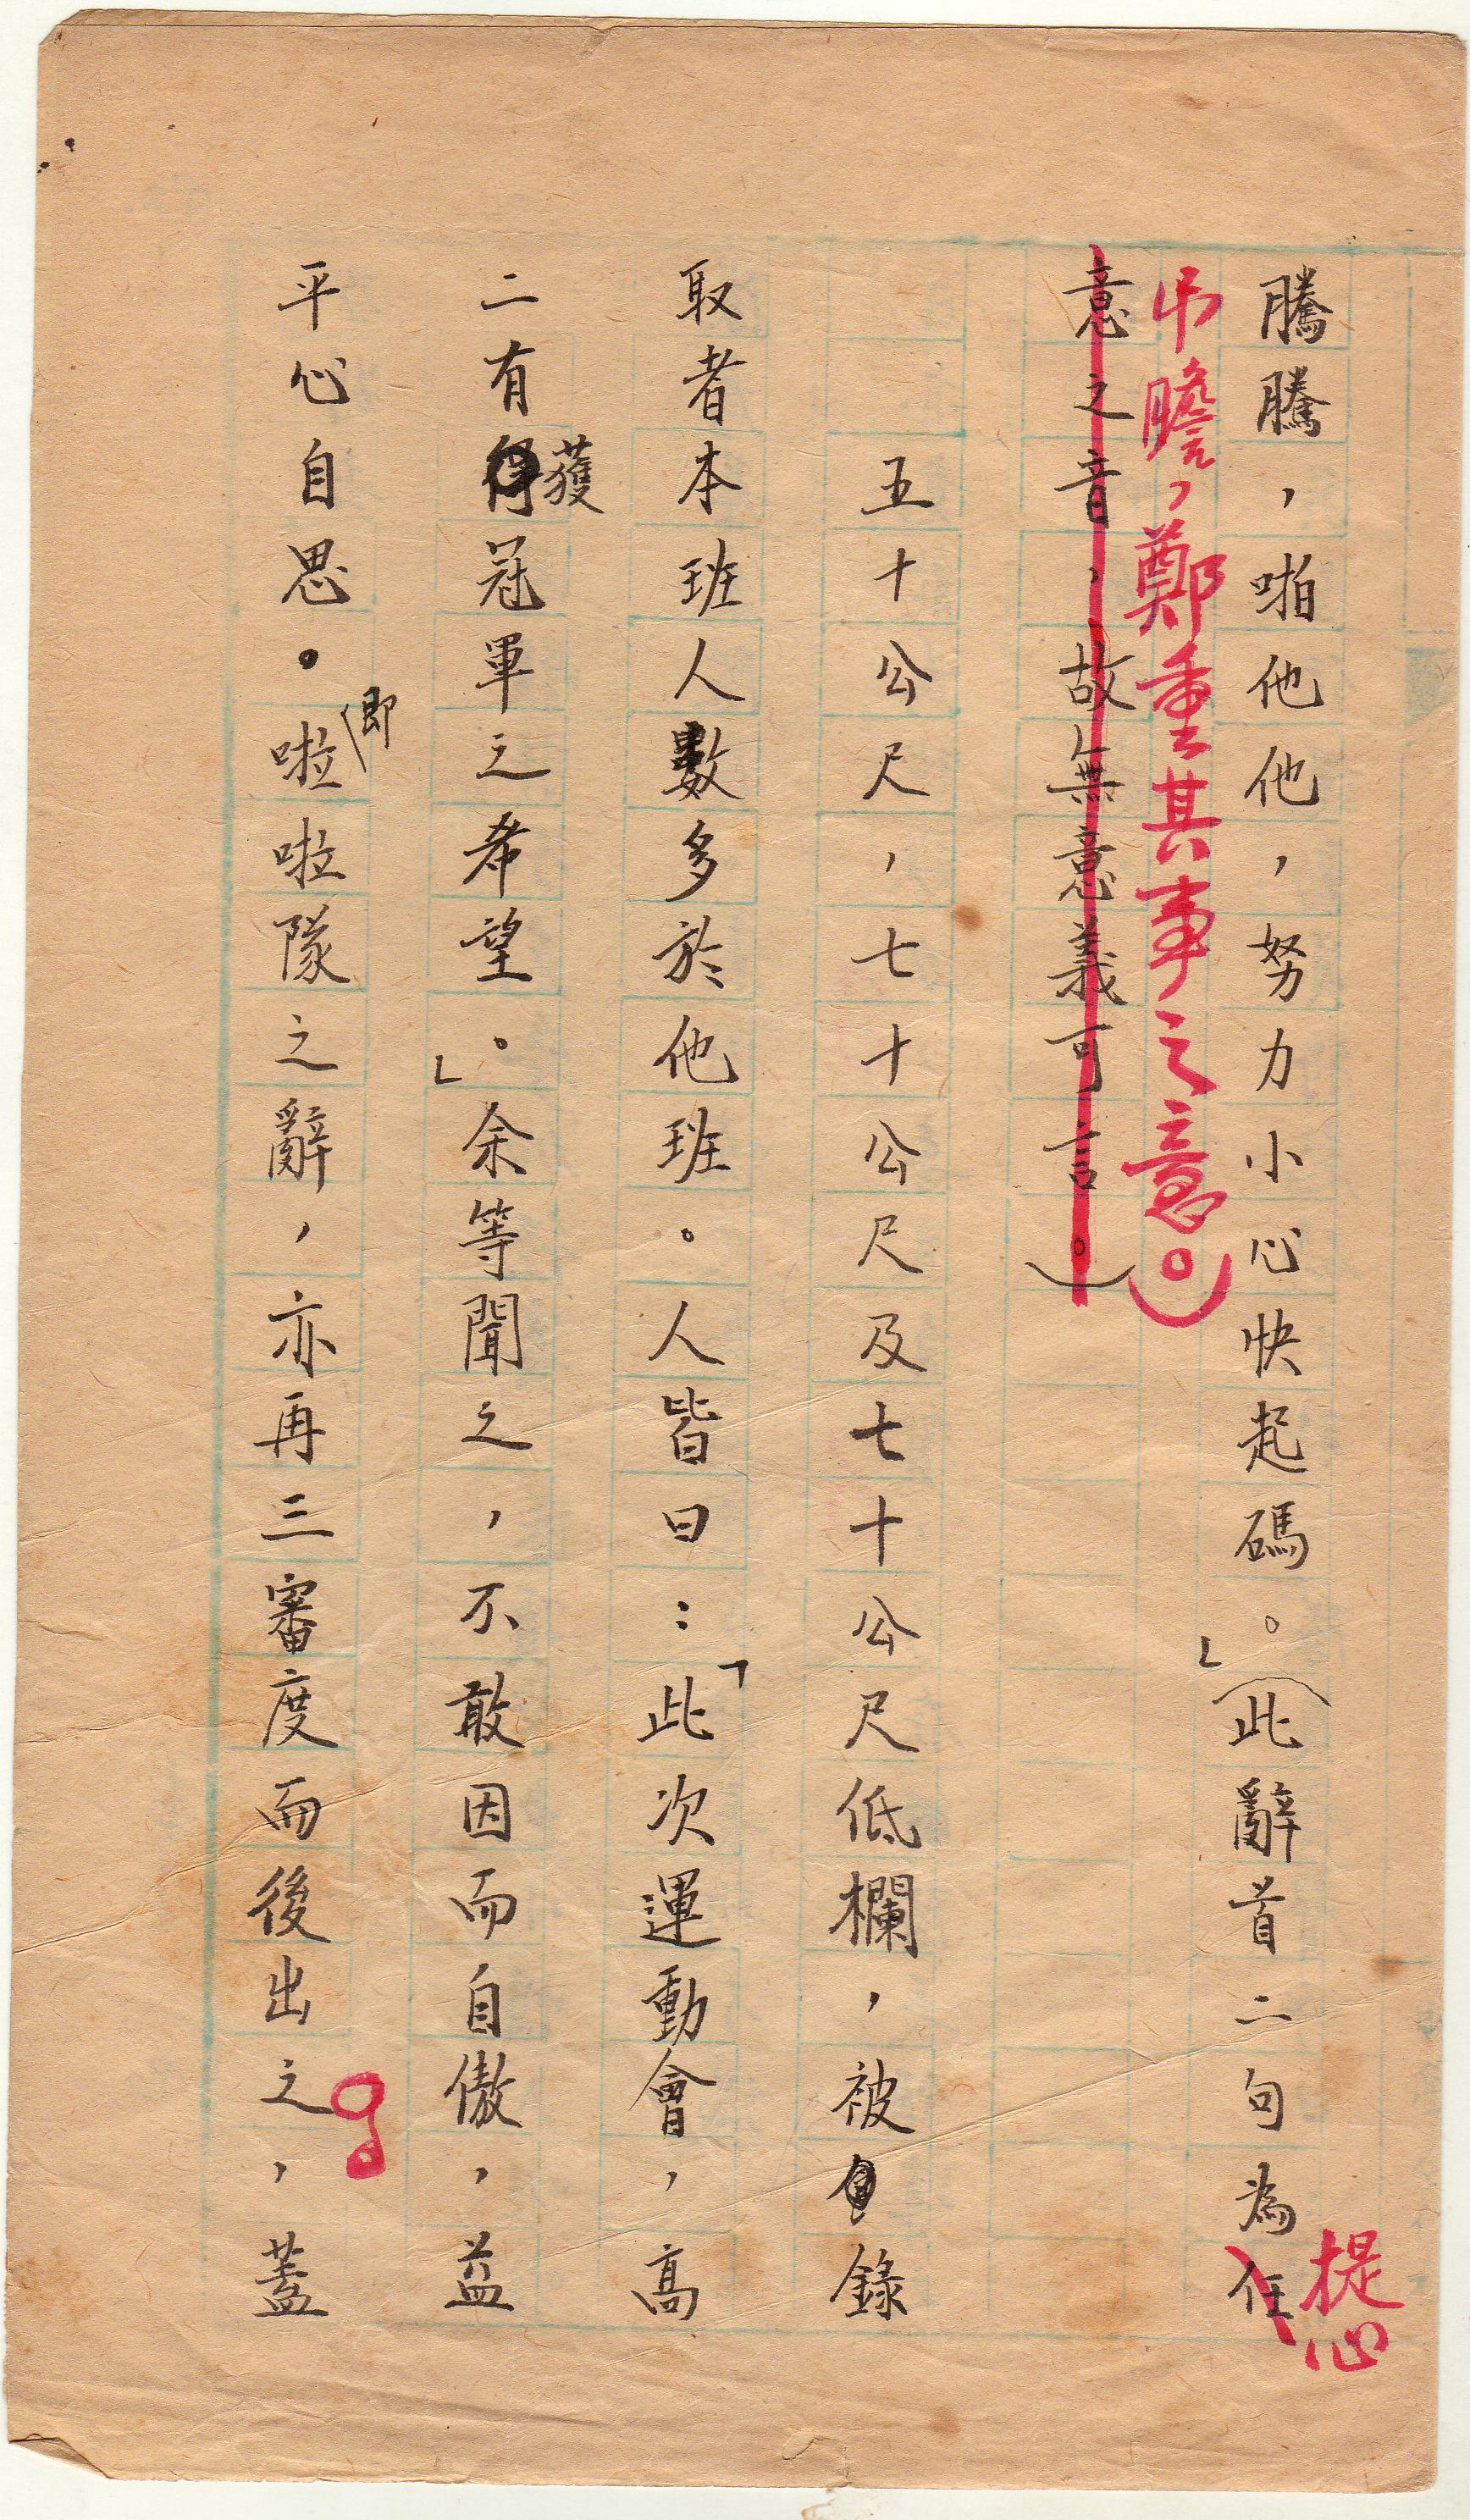 騰騰，啪他他，努力小心快起碼。」（此辭首二句為任
提心
吊膽，鄭重其事之意。）
意之音，故無意義可言。）
五十公尺，七十公尺及七十公尺低欄，被錄
取者本班人數多於他班。人皆曰：「此次運動會，高
二有獲冠軍之希望。」余等聞之，不敢因而自傲，益
平心自思。即啦啦隊之辭，亦再三審度而後出之，蓋